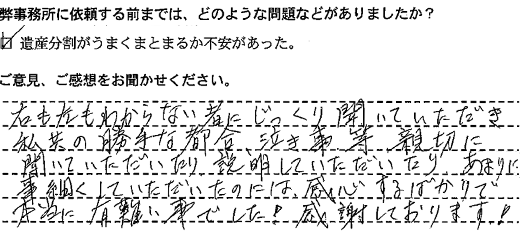 弊事務所に依頼する前までは、どのような問題などがありましたか？
☑ 遺産分割がうまくまとまるか不安があった。
ご意見、ご感想をお聞かせください。
右も左もわからない者にじっくり聞いていただき
私共の勝手な都合、泣き事等 親切に
聞いていただいたり説明していただいたり あまりに
事細くしていただいたのには、感心するばかりで
本当に有難い事でした！感謝しております！